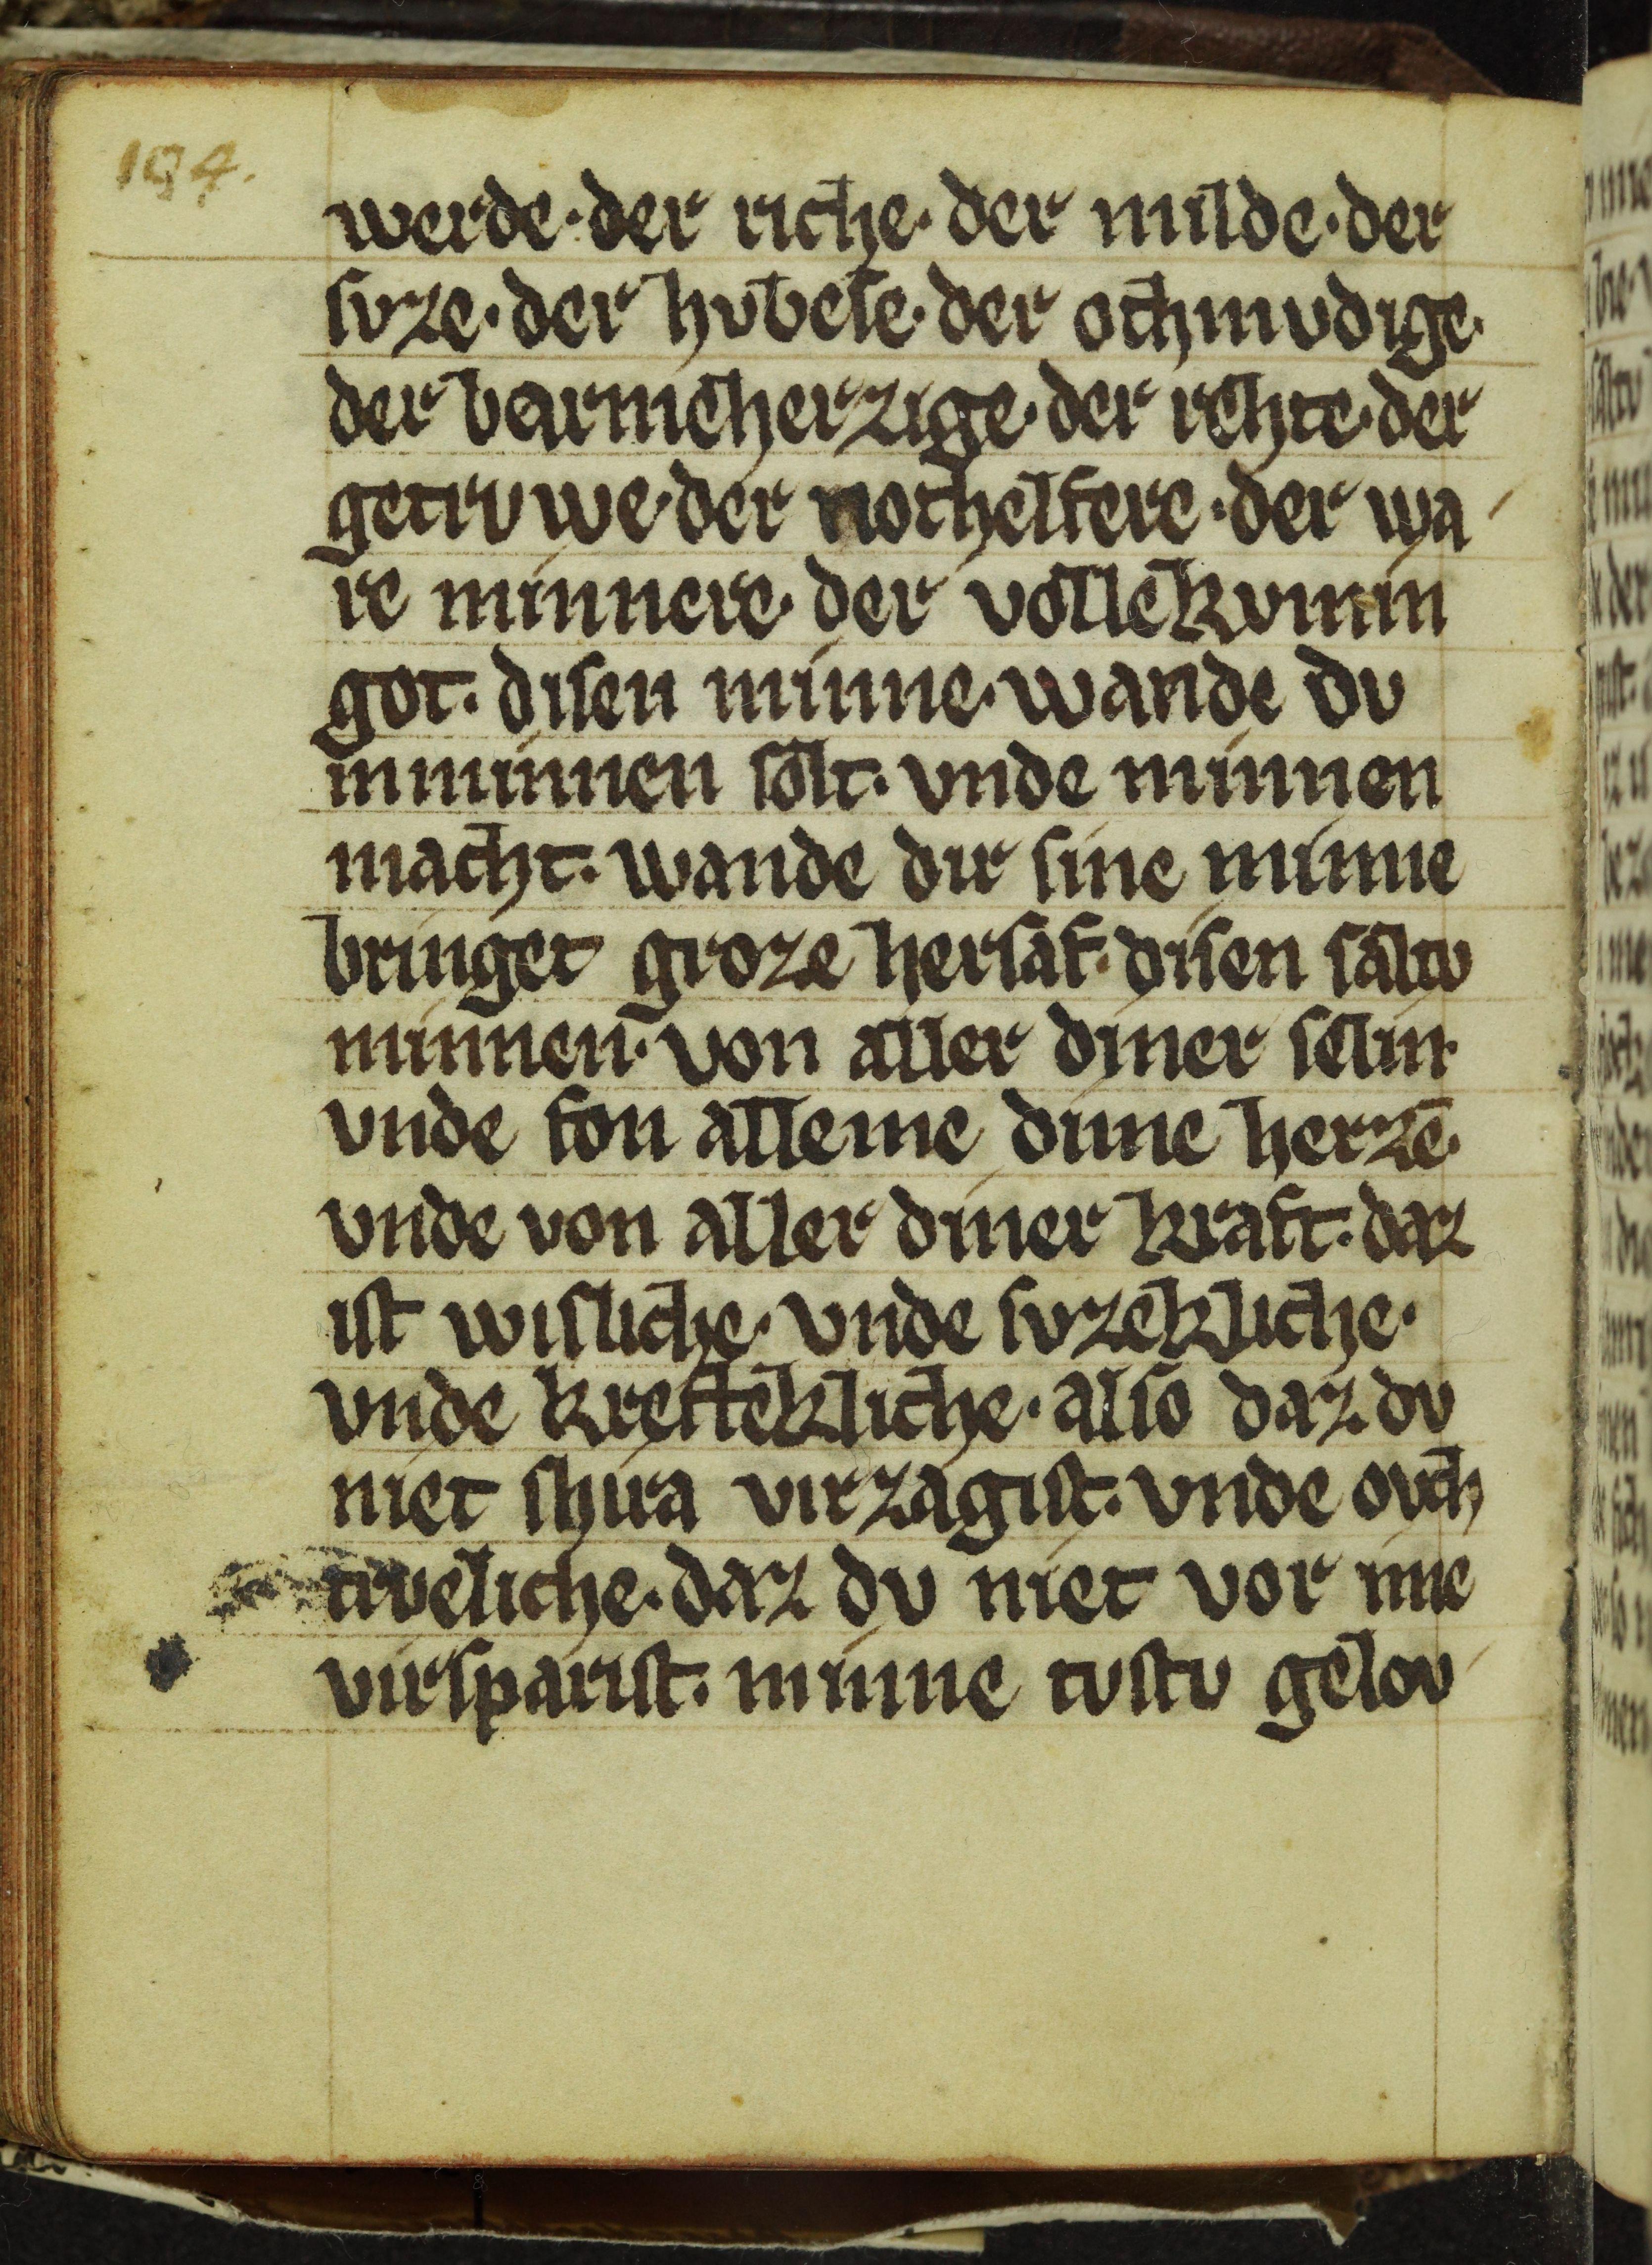 194.
werde. der riche. der milde. der
suze. der hvbese. der othmvdige.
der barmeherzige. der rehte. der
getrvwe. der nothelfere. der wa
re minnere. der vollekvmin
got. disen minne. wande dv
inminnen solt. vnde minnen
macht. wande dir sine minne
bringet groze hersaf. disen saltv
minnen. von aller diner selin.
vnde fon alleme dime herzē.
vnde von aller diner kraft. daz
ist wisliche. vnde svzekliche.
vnde kreftekliche. also daz dv
niet shira virzagist. vnde ovch
trveliche. daz dv niet vor ime
virsparist. minne tvstv gelov